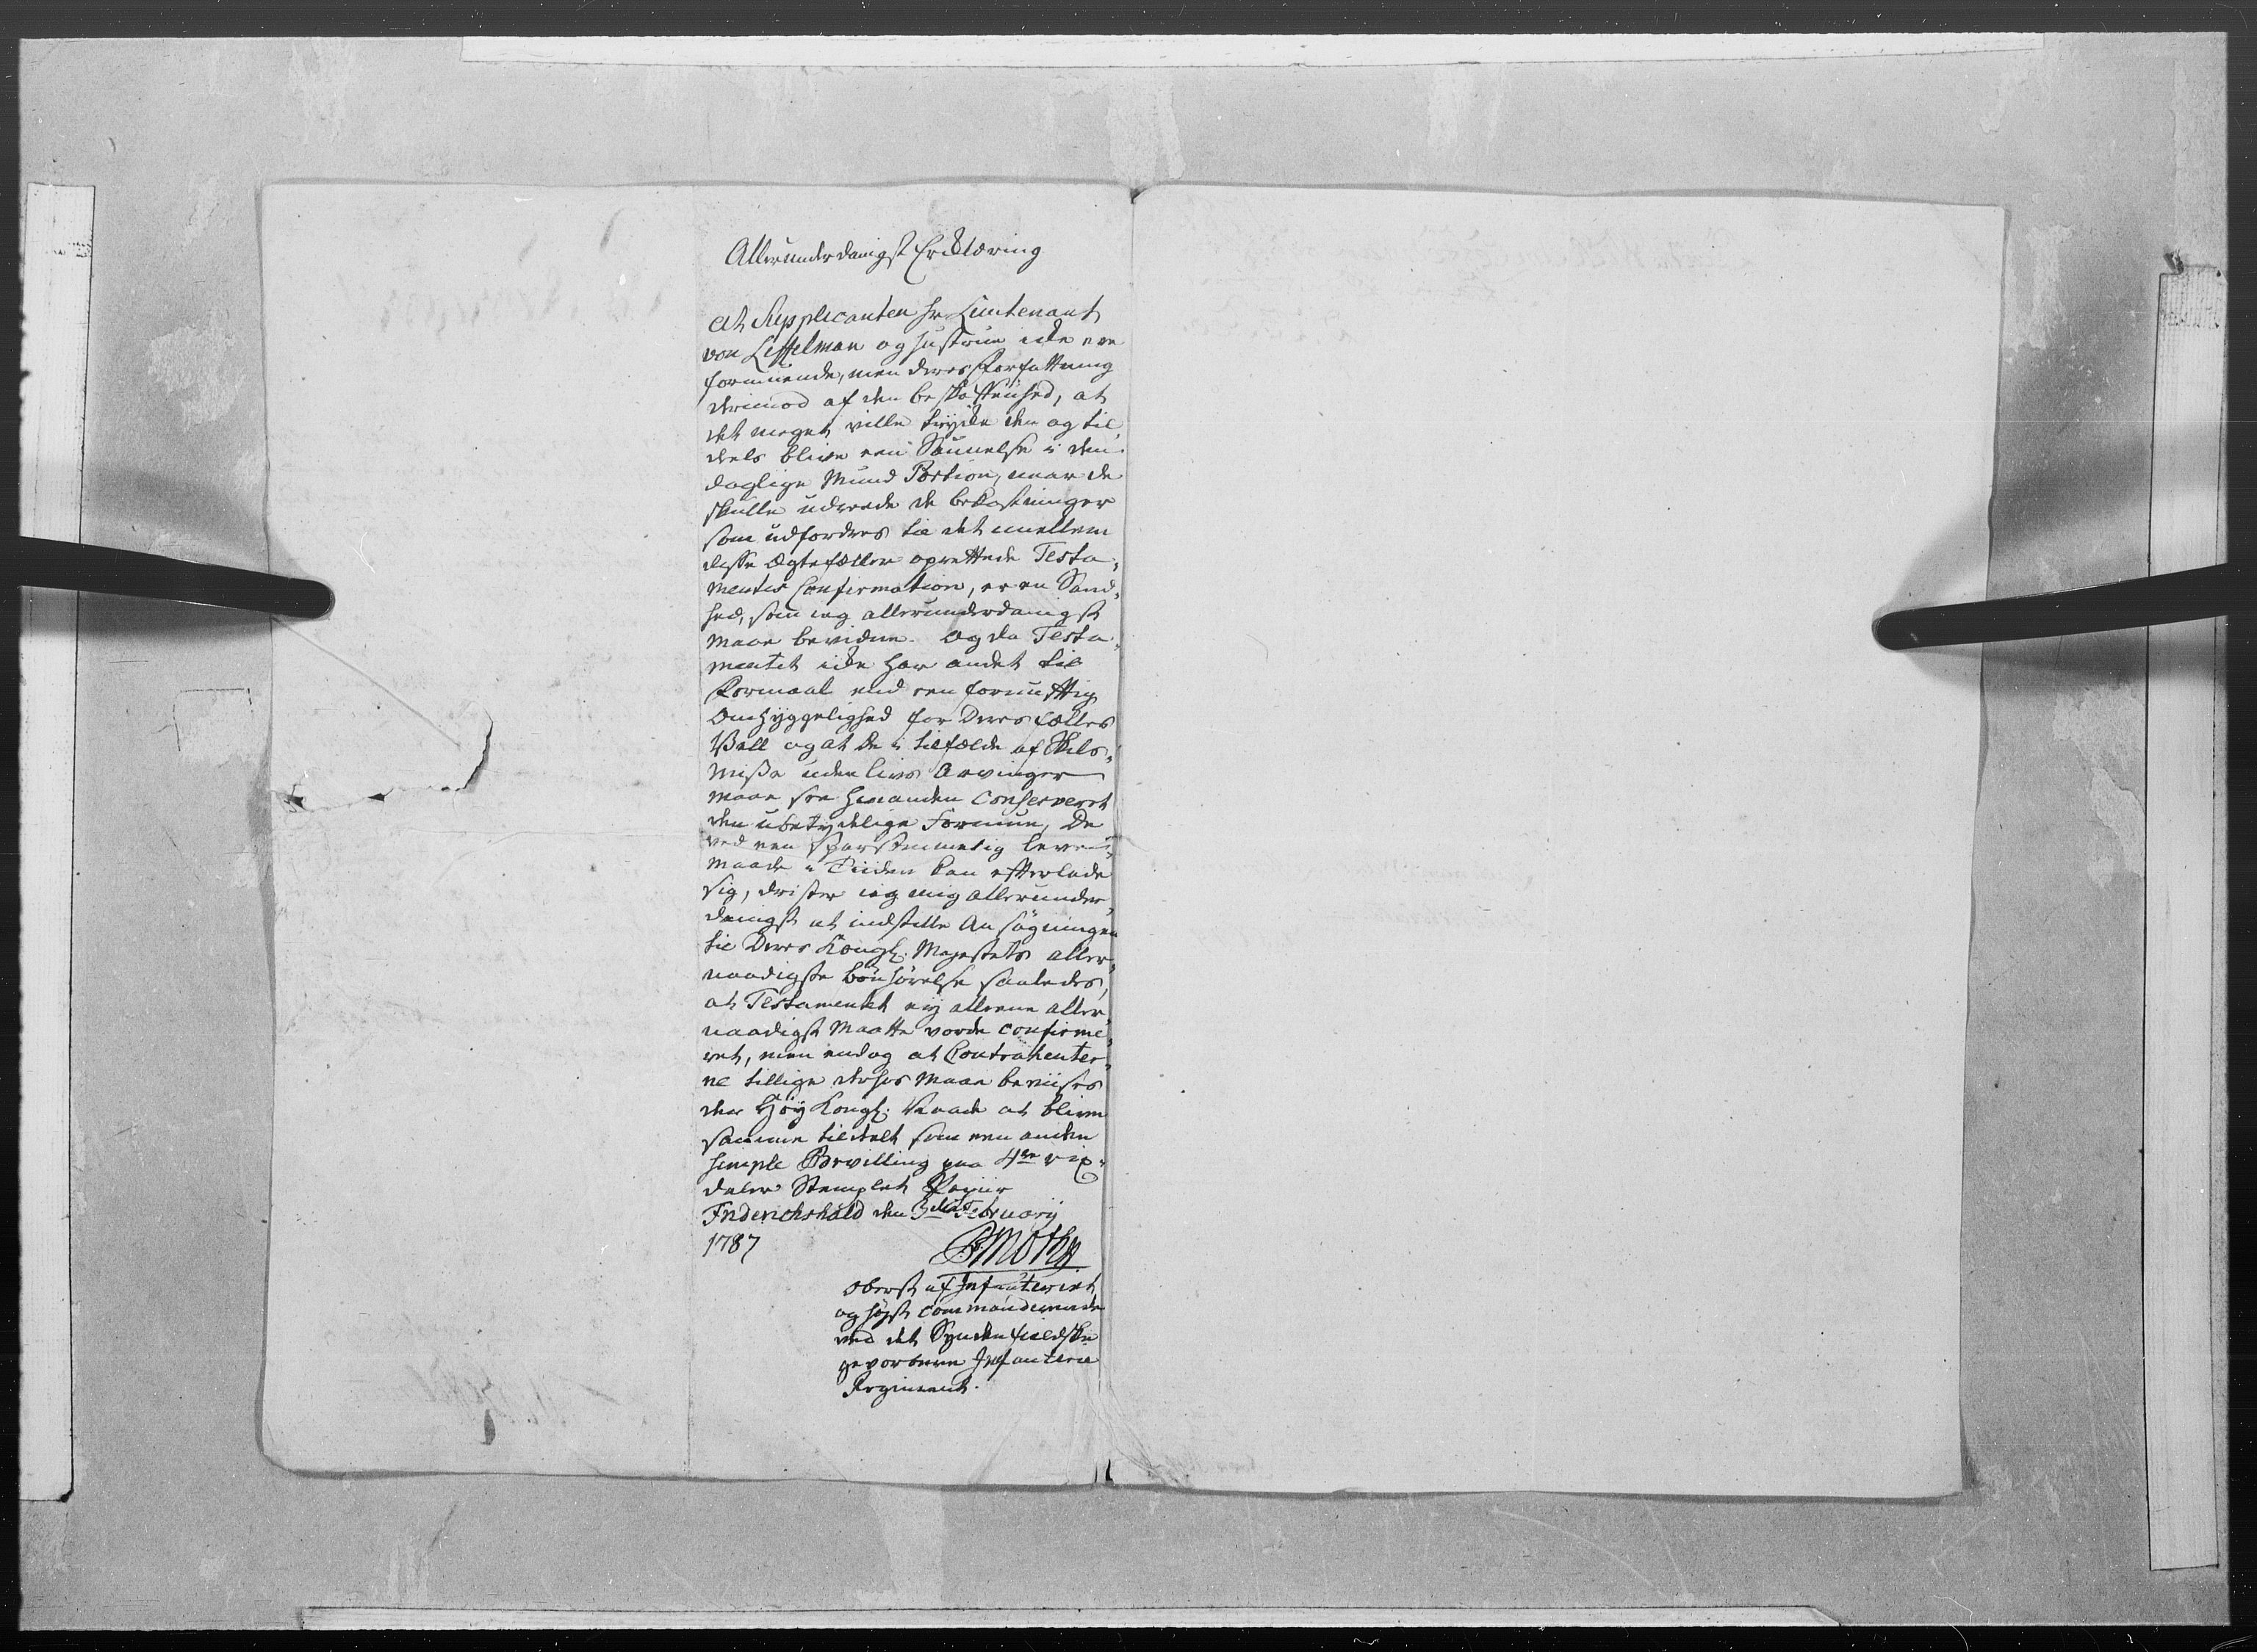 Allerunderdanigst Erklæring
At Supplicanten Hr Lieutenant
von Leffelman og Hustrue icke ere
formuende, men deres Forfattning
derimod af den beskaffenhed, at
det meget ville trycke dem og til
dels blive een Savnelse i den
daglige Mund Portion, naar de
skulle udreede de bekostninger
som udfordres til det imellem
disse Ægtefæller oprettede Testa,
mentes Confirmation, er en Sand,
hed, som ieg allerunderdanigst
maae bevidne. Og da Testa,
mentet icke har andet til
Formaal end een fornufftig
Omhyggelighed for Deres fælles
Vell og at de i tilfælde af Skils,
misse uden livs Arvinger
maae see hinanden Conserveret
den ubetydelige Formue, De
ved een sparsommelig leve,
maade i Tiiden kan efterlade
sig, drister ieg mig allerunder,
danigst at indstille Ansøgningen
til Deres Kongl. Majestets aller,
naadigste bønhørelse saaledes,
at Testamentet eij alleene aller,
naadigst maatte vorde confirme,
ret, men endog at Contrahenter,
ne tillige dessen maae beviises
den Høy Kongl. Naade at blive
samme tildelt som een anden
simple Bevilling paa 4re rix,
daler Stemplet Papiir
Friderichshald den 3die February
1787
Moth
Oberst af Infanteriet
og høyst commanderende
ved det Syndenfieldske
gevorbene Infanterie
Regiment.